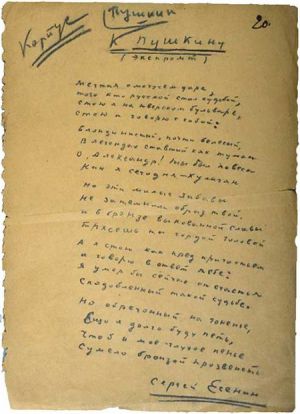 Пушкин
20
К Пушкину
(Экспромт)
Мечтая о могучем даре,
того кто русской стал судьбой,
стою я на Тверском бульваре,
стою и говорю с тобой.
Блондинистый, почти белесый,
В легендах ставший как туман
О, Александр! Ты был повеса
Как я сегодня - Хулиган
Но эти милые забавы
Не затемнили образ твой
и в бронзе выкованной славы
Трясешь ты гордой головой
А я стою как пред причастьем
и говорю в ответ тебе:
Я умер бы сейчас от счастья
Сподобленный такой судьбе.
Но обреченный на гоненье,
Еще я долго буду петь,
Чтоб и мое пенье
Сумело бронзой прозвенеть
Сергей Есенин